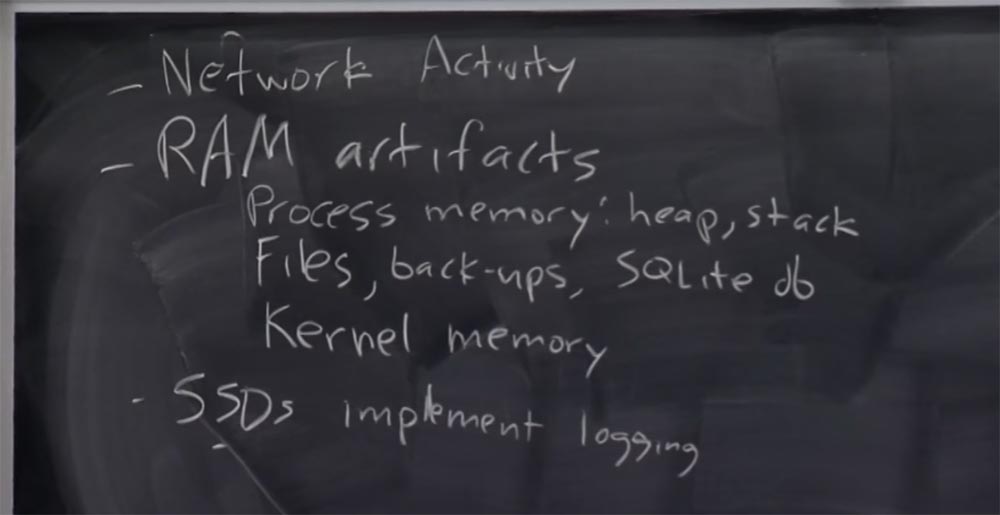 - Network Activity
- RAM artifacts
Process memory: heap, stack
Files, back-ups, SQLite db
Kernel memory
- SSDs implement logging